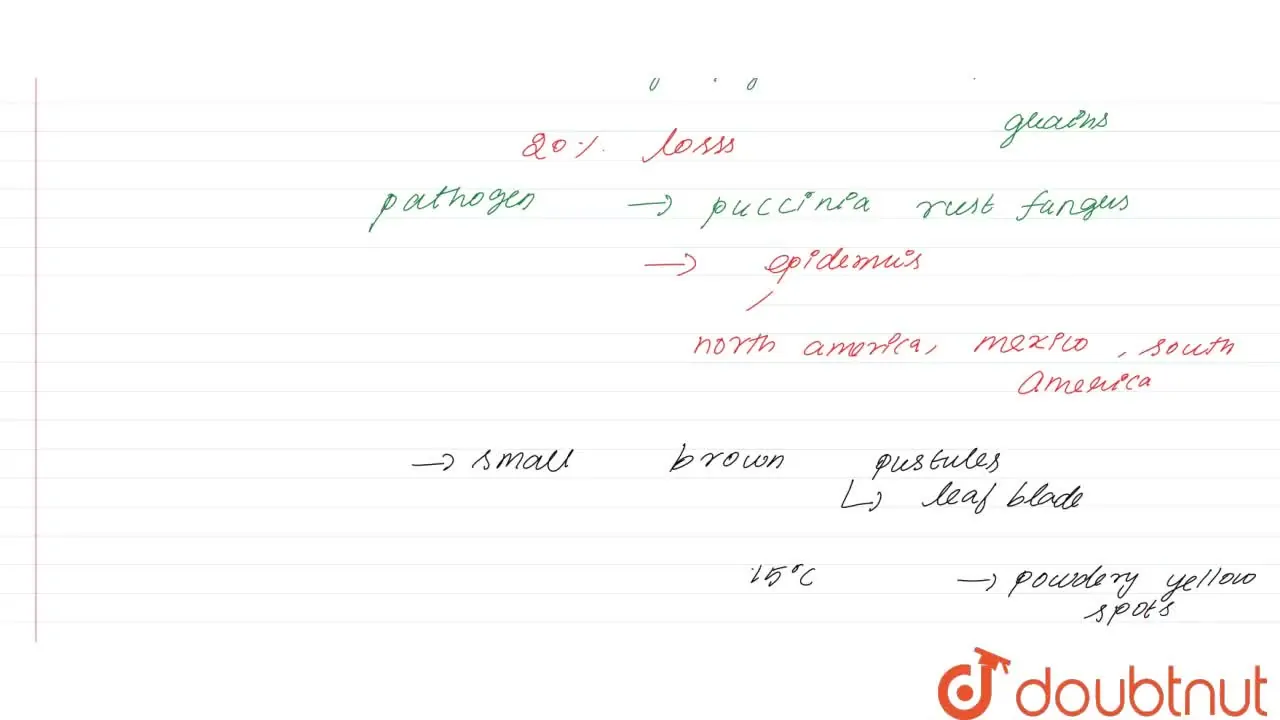 grains
20% losss
pathogen → puccinia rust fungus
→ epidemuis
north america, mexico, south
America
→ small brown pustules
↳ leaf blade
15°C → powdery yellow
spots
doubtnut